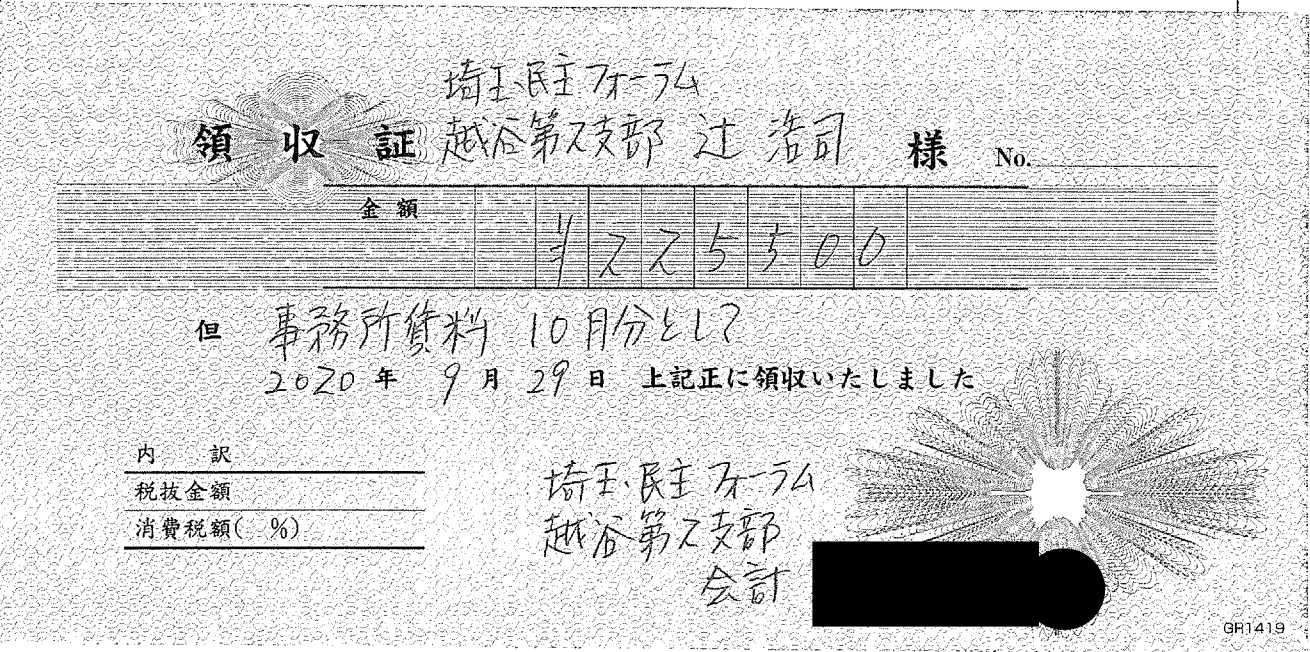 埼玉民主フォーラム
領収証 越谷第2支部 辻 浩司 様 No.
金額 ¥225500
但 事務所賃料 10月分として
2020年 9月29日 上記正に領収いたしました
内訳
税抜金額
消費税額( %)
埼玉民主フォーラム
越谷第2支部
会計
GR1419